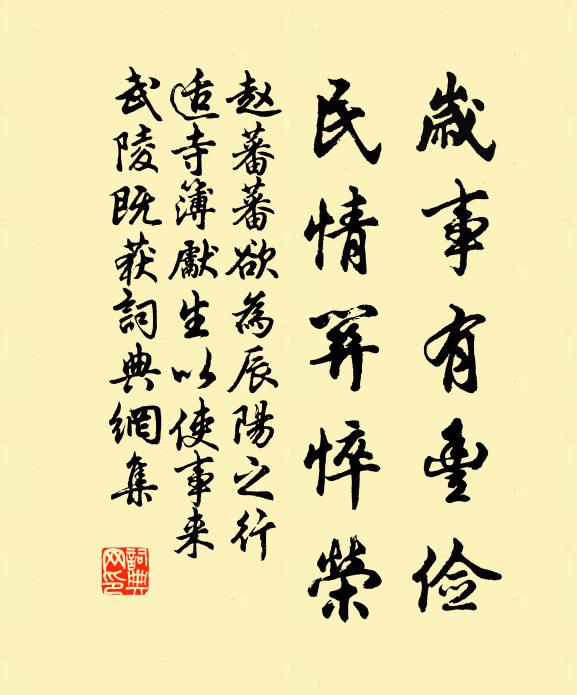 歲事有豐儉
民情悴榮
赵蕃蕃欲為辰陽之行
适寺簿獻生以使事来
武陵既获詞典網集
詞典网印